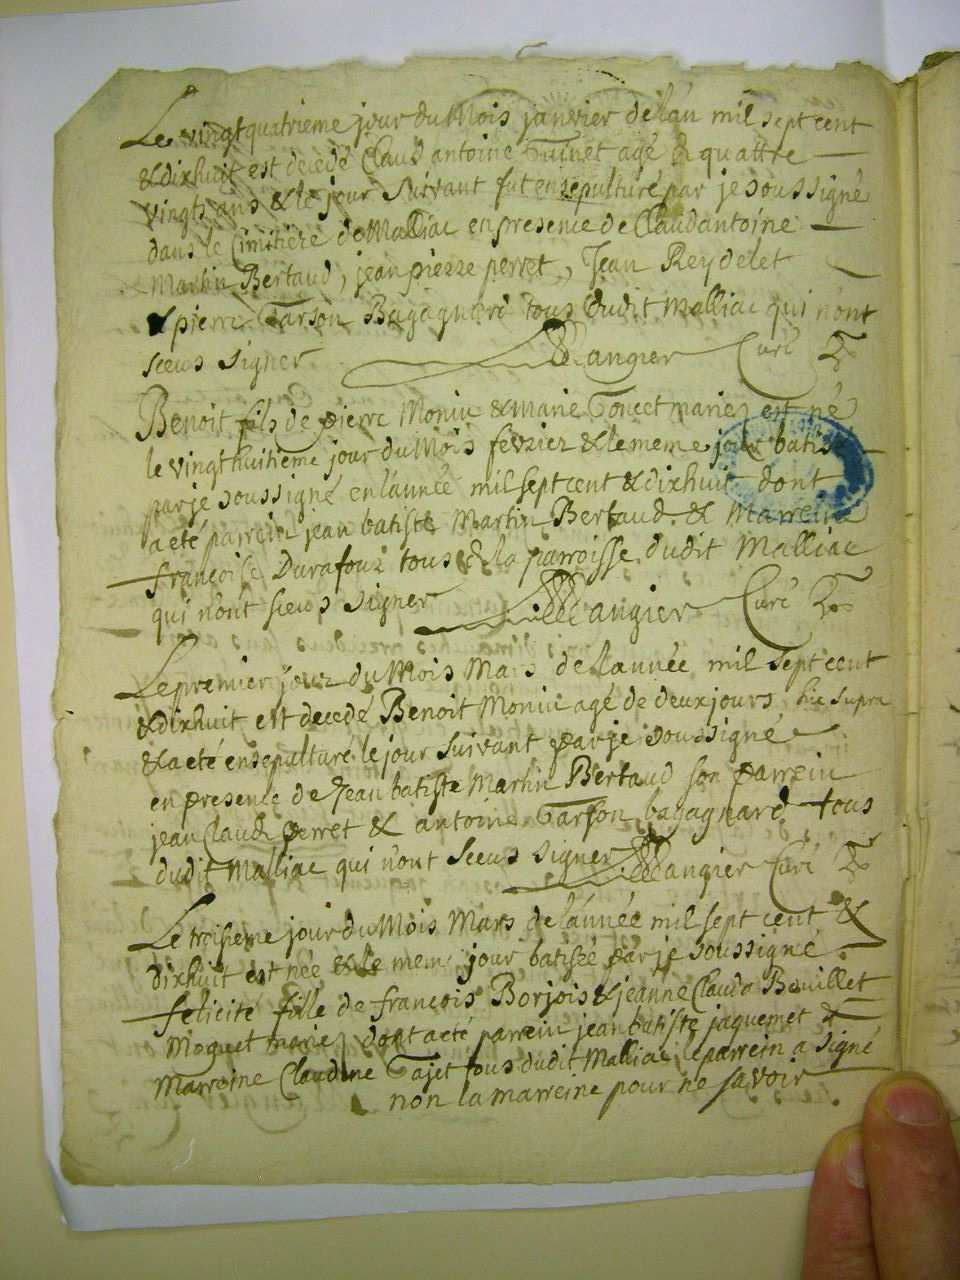 Le vingtquatrieme jour du Mois janvier de lan mil sept cent
& dixhuit est decedé Claud antoine Tuinet agé de quattre
vingts ans & le jour suivant fut ensepulturé par je soussigné
dans le Cimitiere de Malliac en presence de Claudantoine
Martin Bertaud, jean pierre perret, Jean Reydelet
& pierre Tarson Bagagnard tous dudit Malliac qui n'ont
sceus signer Langier Curé
Benoit fils de pierre Monin & Marie mariez est né
le vingthuitieme jour du Mois fevrier & le meme jour batisé
par je soussigné en lannée mil sept cent & dixhuit dont
a eté parrein jean batiste Martin Bertaud & Marreine
françoise Durafour tous de la parroisse dudit Malliac
qui n'ont sceus signer Langier Curé
Le premier jour du Mois Mars de lannée mil sept cent
& dixhuit est decedé Benoit Monin agé de deux jours hic supra
& a eté ensepulturé le jour suivant par je soussigné
en presence de Jean batiste Martin Bertaud son parrein
jean Claude perret & antoine Tarson bagagnard tous
dudit Malliac qui n'ont sceus signer Langier Curé
Le troisieme jour du Mois Mars de lannée mil sept cent &
dixhuit est née & le meme jour batisée par je soussigné
felicité fille de françois Borjois & jeanne Claude Bouillet
Moquet mariez dont a eté parrein jean batiste jaquemet &
Marreine Claudine Tajet tous dudit Malliac le parrein a signé
non la marreine pour ne savoir